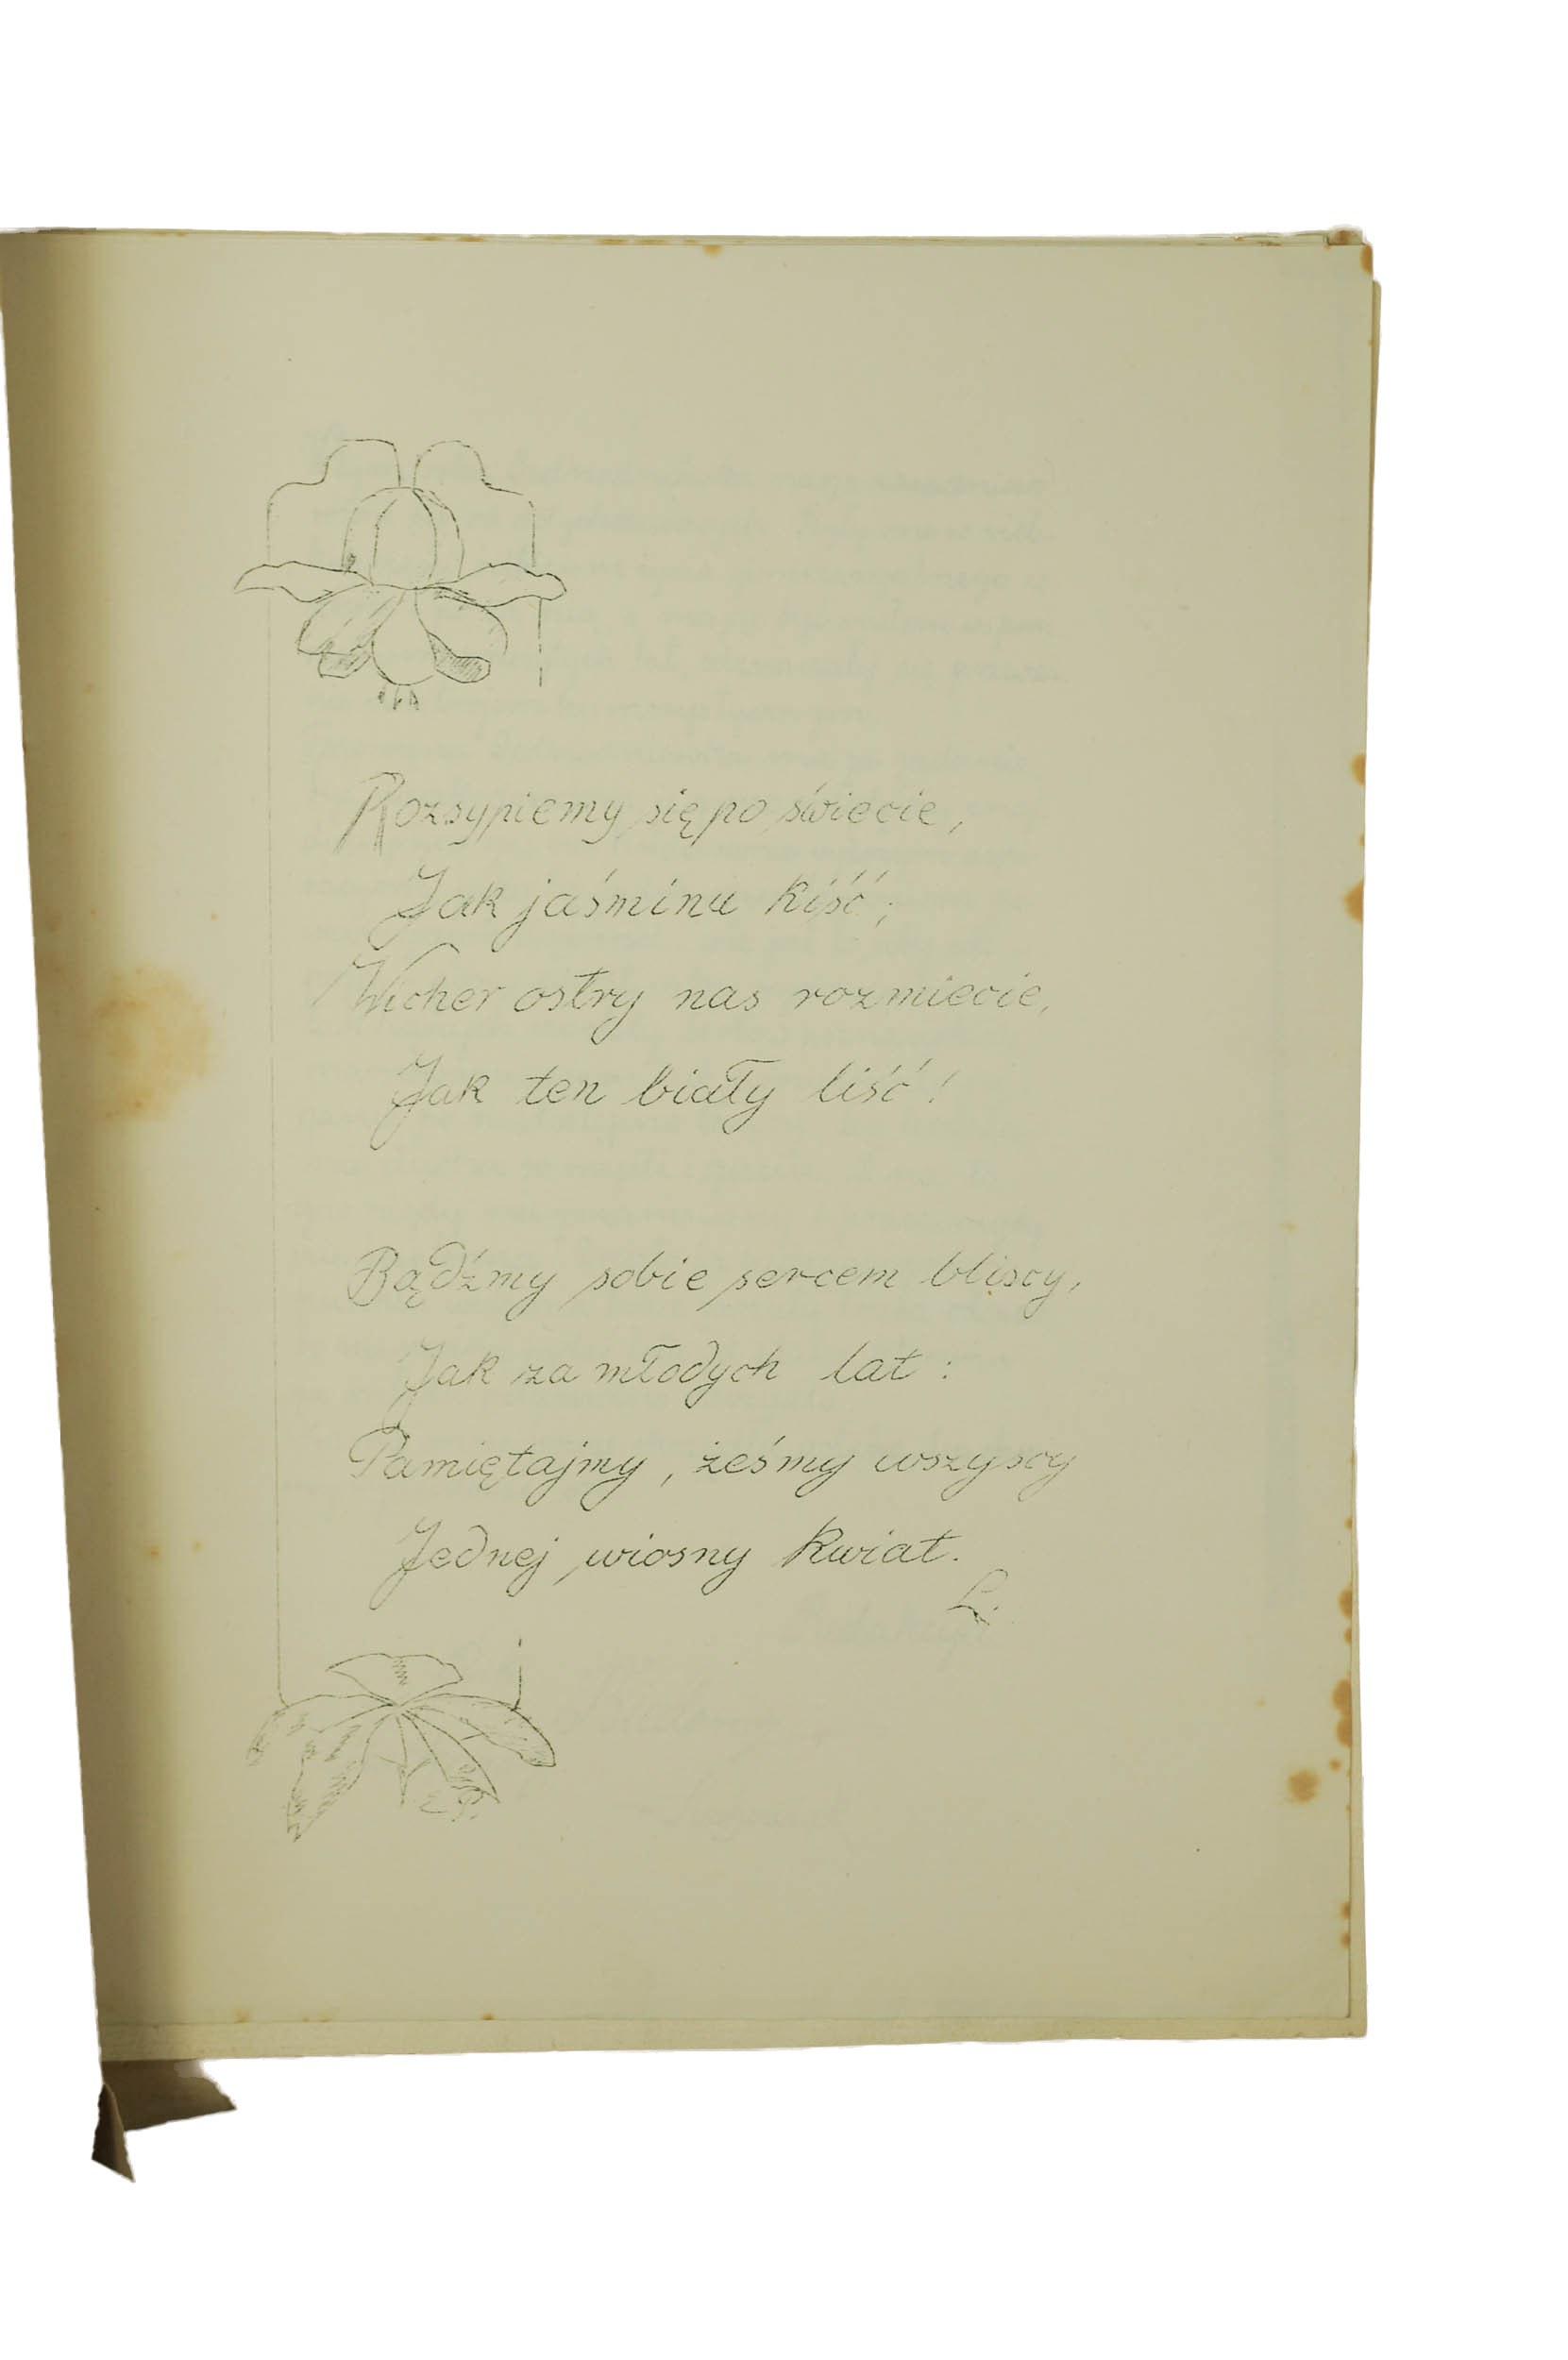 Rozsypiemy się po świecie,
Jak jaśminu kiść;
Wicher ostry nas rozmiecie,
Jak ten biały liść!
Bądźmy sobie sercem bliscy,
Jak za młodych lat:
Pamiętajmy, żeśmy wszyscy
Jednej wiosny kwiat.
L.